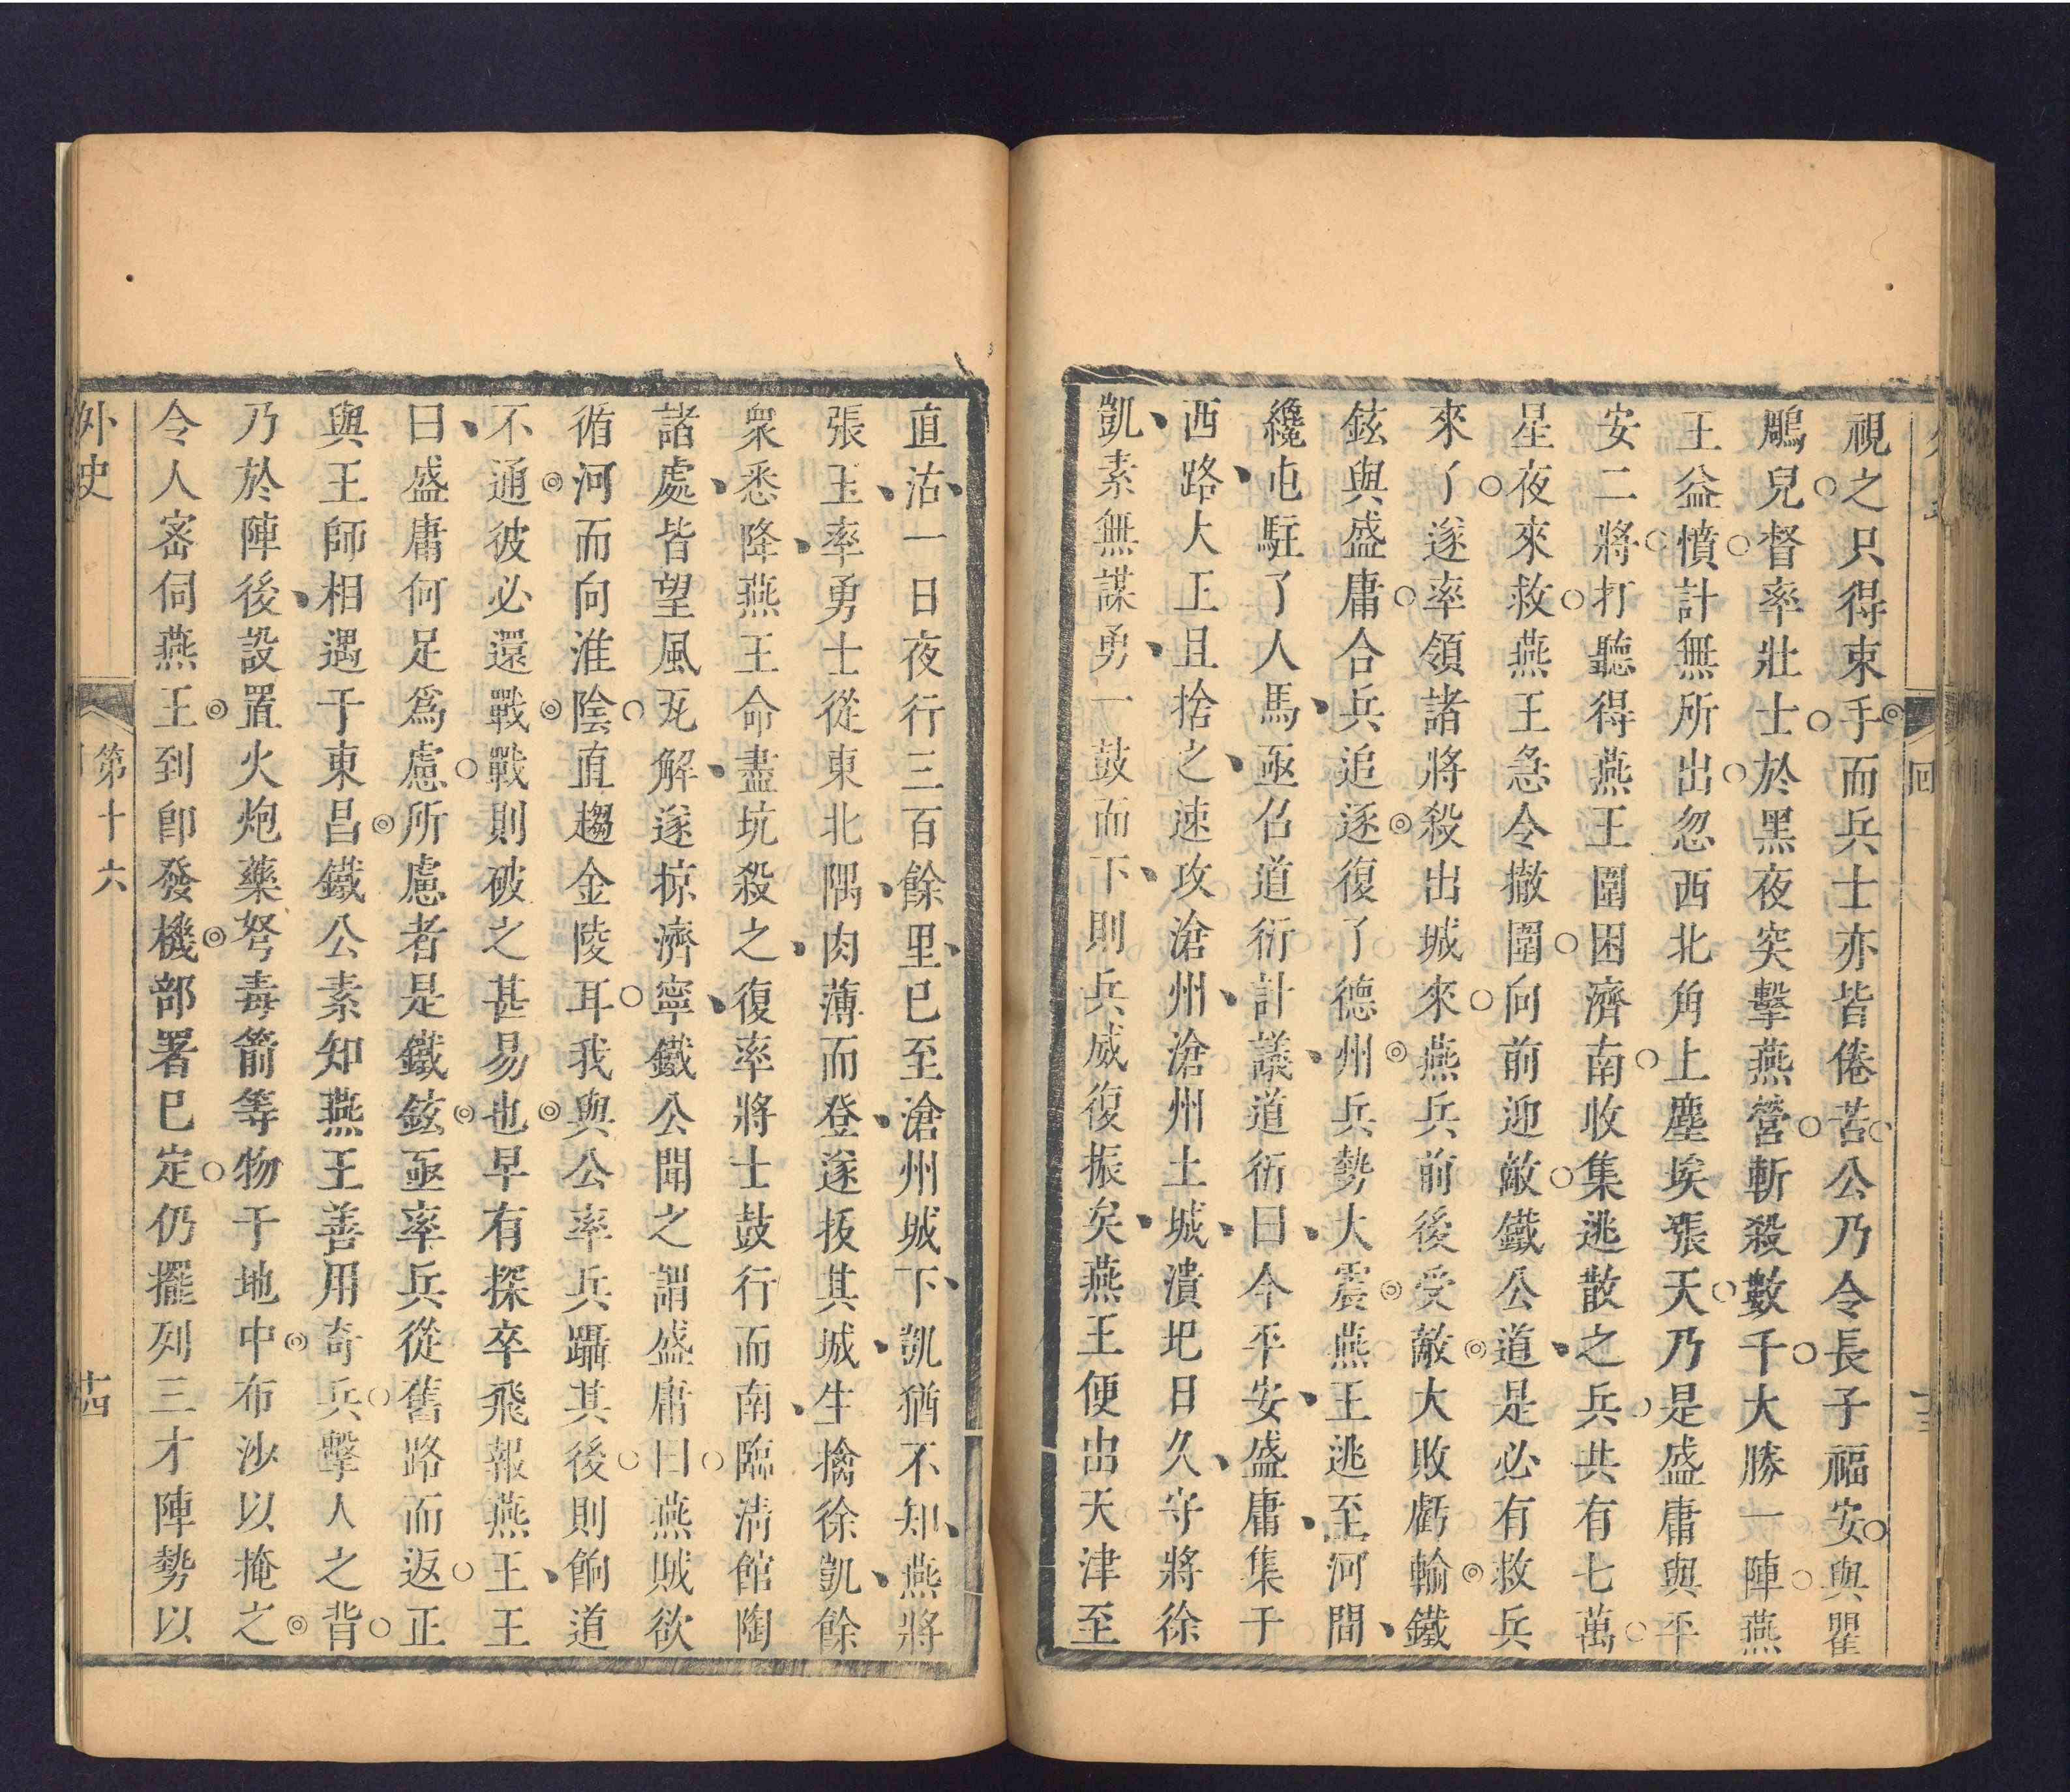 視之只得束手而兵士亦皆倦苦公乃令長子福安與瞿
鵰兒督率壯士於黑夜突擊燕營斬殺數千大勝一陣燕
王益憤計無所出忽西北角上塵埃漲天乃是盛庸與平
安二將打聽得燕王圍困濟南收集逃散之兵共有七萬
星夜來救燕王急令撤圍向前迎敵鐵公道是必有救兵
來了遂率領諸將殺出城來燕兵前後受敵大敗虧輸鐵
鉉與盛庸合兵追逐復了德州兵勢大震燕王逃至河間
纔屯駐了人馬亟召道衍計議道衍曰今平安盛庸集于
西路大王且捨之速攻滄州滄州土城潰圮日久守將徐
凱素無謀勇一鼓而下則兵威復振矣燕王便出天津至
直沽一日夜行三百餘里已至滄州城下凱猶不知燕將
張玉率勇士從東北隅肉薄而登遂拔其城生擒徐凱餘
衆悉降燕王命盡坑殺之復率將士鼓行而南臨清館陶
諸處皆望風瓦解遂掠濟寧鐵公聞之謂盛庸曰燕賊欲
循河而向淮陰直趨金陵耳我與公率兵躡其後則餉道
不通彼必還戰戰則破之甚易也早有探卒飛報燕王王
曰盛庸何足爲慮所慮者是鐵鉉亟率兵從舊路而返正
與王師相遇于東昌鐵公素知燕王善用奇兵擊人之背
乃於陣後設置火炮藥弩毒箭等物于地中布沙以掩之
令人密伺燕王到卽發機部署已定仍擺列三才陣勢以
外史
第十六
十四